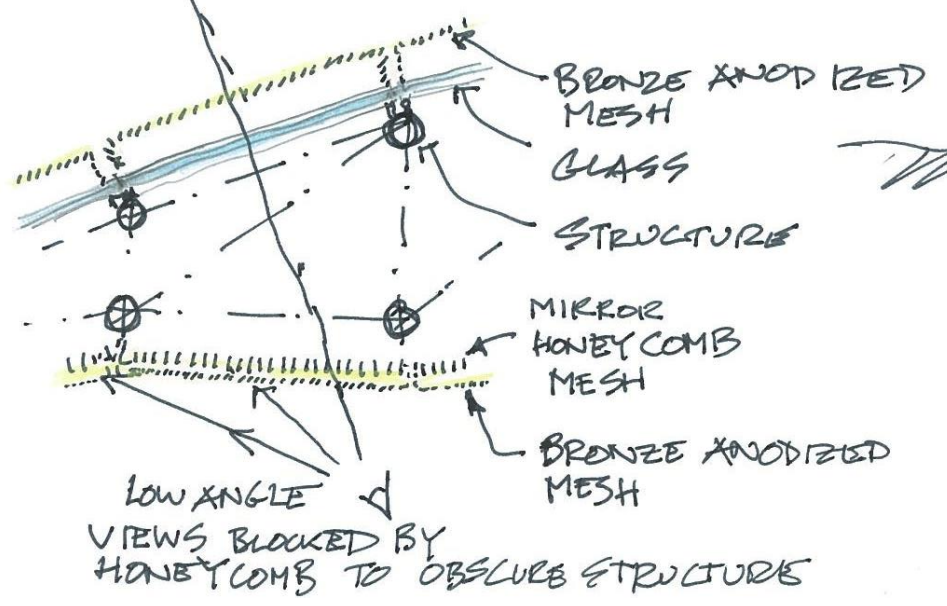 BRONZE ANODIZED
MESH
GLASS
STRUCTURE
MIRROR
HONEYCOMB
MESH
BRONZE ANODIZED
MESH
LOW ANGLE
VIEWS BLOCKED BY
HONEYCOMB TO OBSCURE STRUCTURE